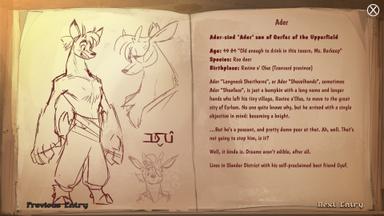 Ader
Ader-sind "Ader" son of Gerfas of the Upperfield
Age: 19 24 "Old enough to drink in this tavern, Ms. Barkeep"
Species: Roe deer
Birthplace: Ravine o' Olas (Tearount province)
Ader "Longneck Shorthorns", or Ader "Shovelhands", sometimes
Ader "Shoeless", is just a bumpkin with a long name and longer
hands who left his tiny village, to move to the great
city of No one quite knows why, but he arrived with a single
objective in mind: becoming a knight.
...But he's a peasant, and pretty damn poor at that. Ah, well. That's
not going to stop him, is it?
Well, it kinda is. Dreams aren't edible, after all.
Lives in Slander District with his self-proclaimed best friend
Previous Entry
Next Entry